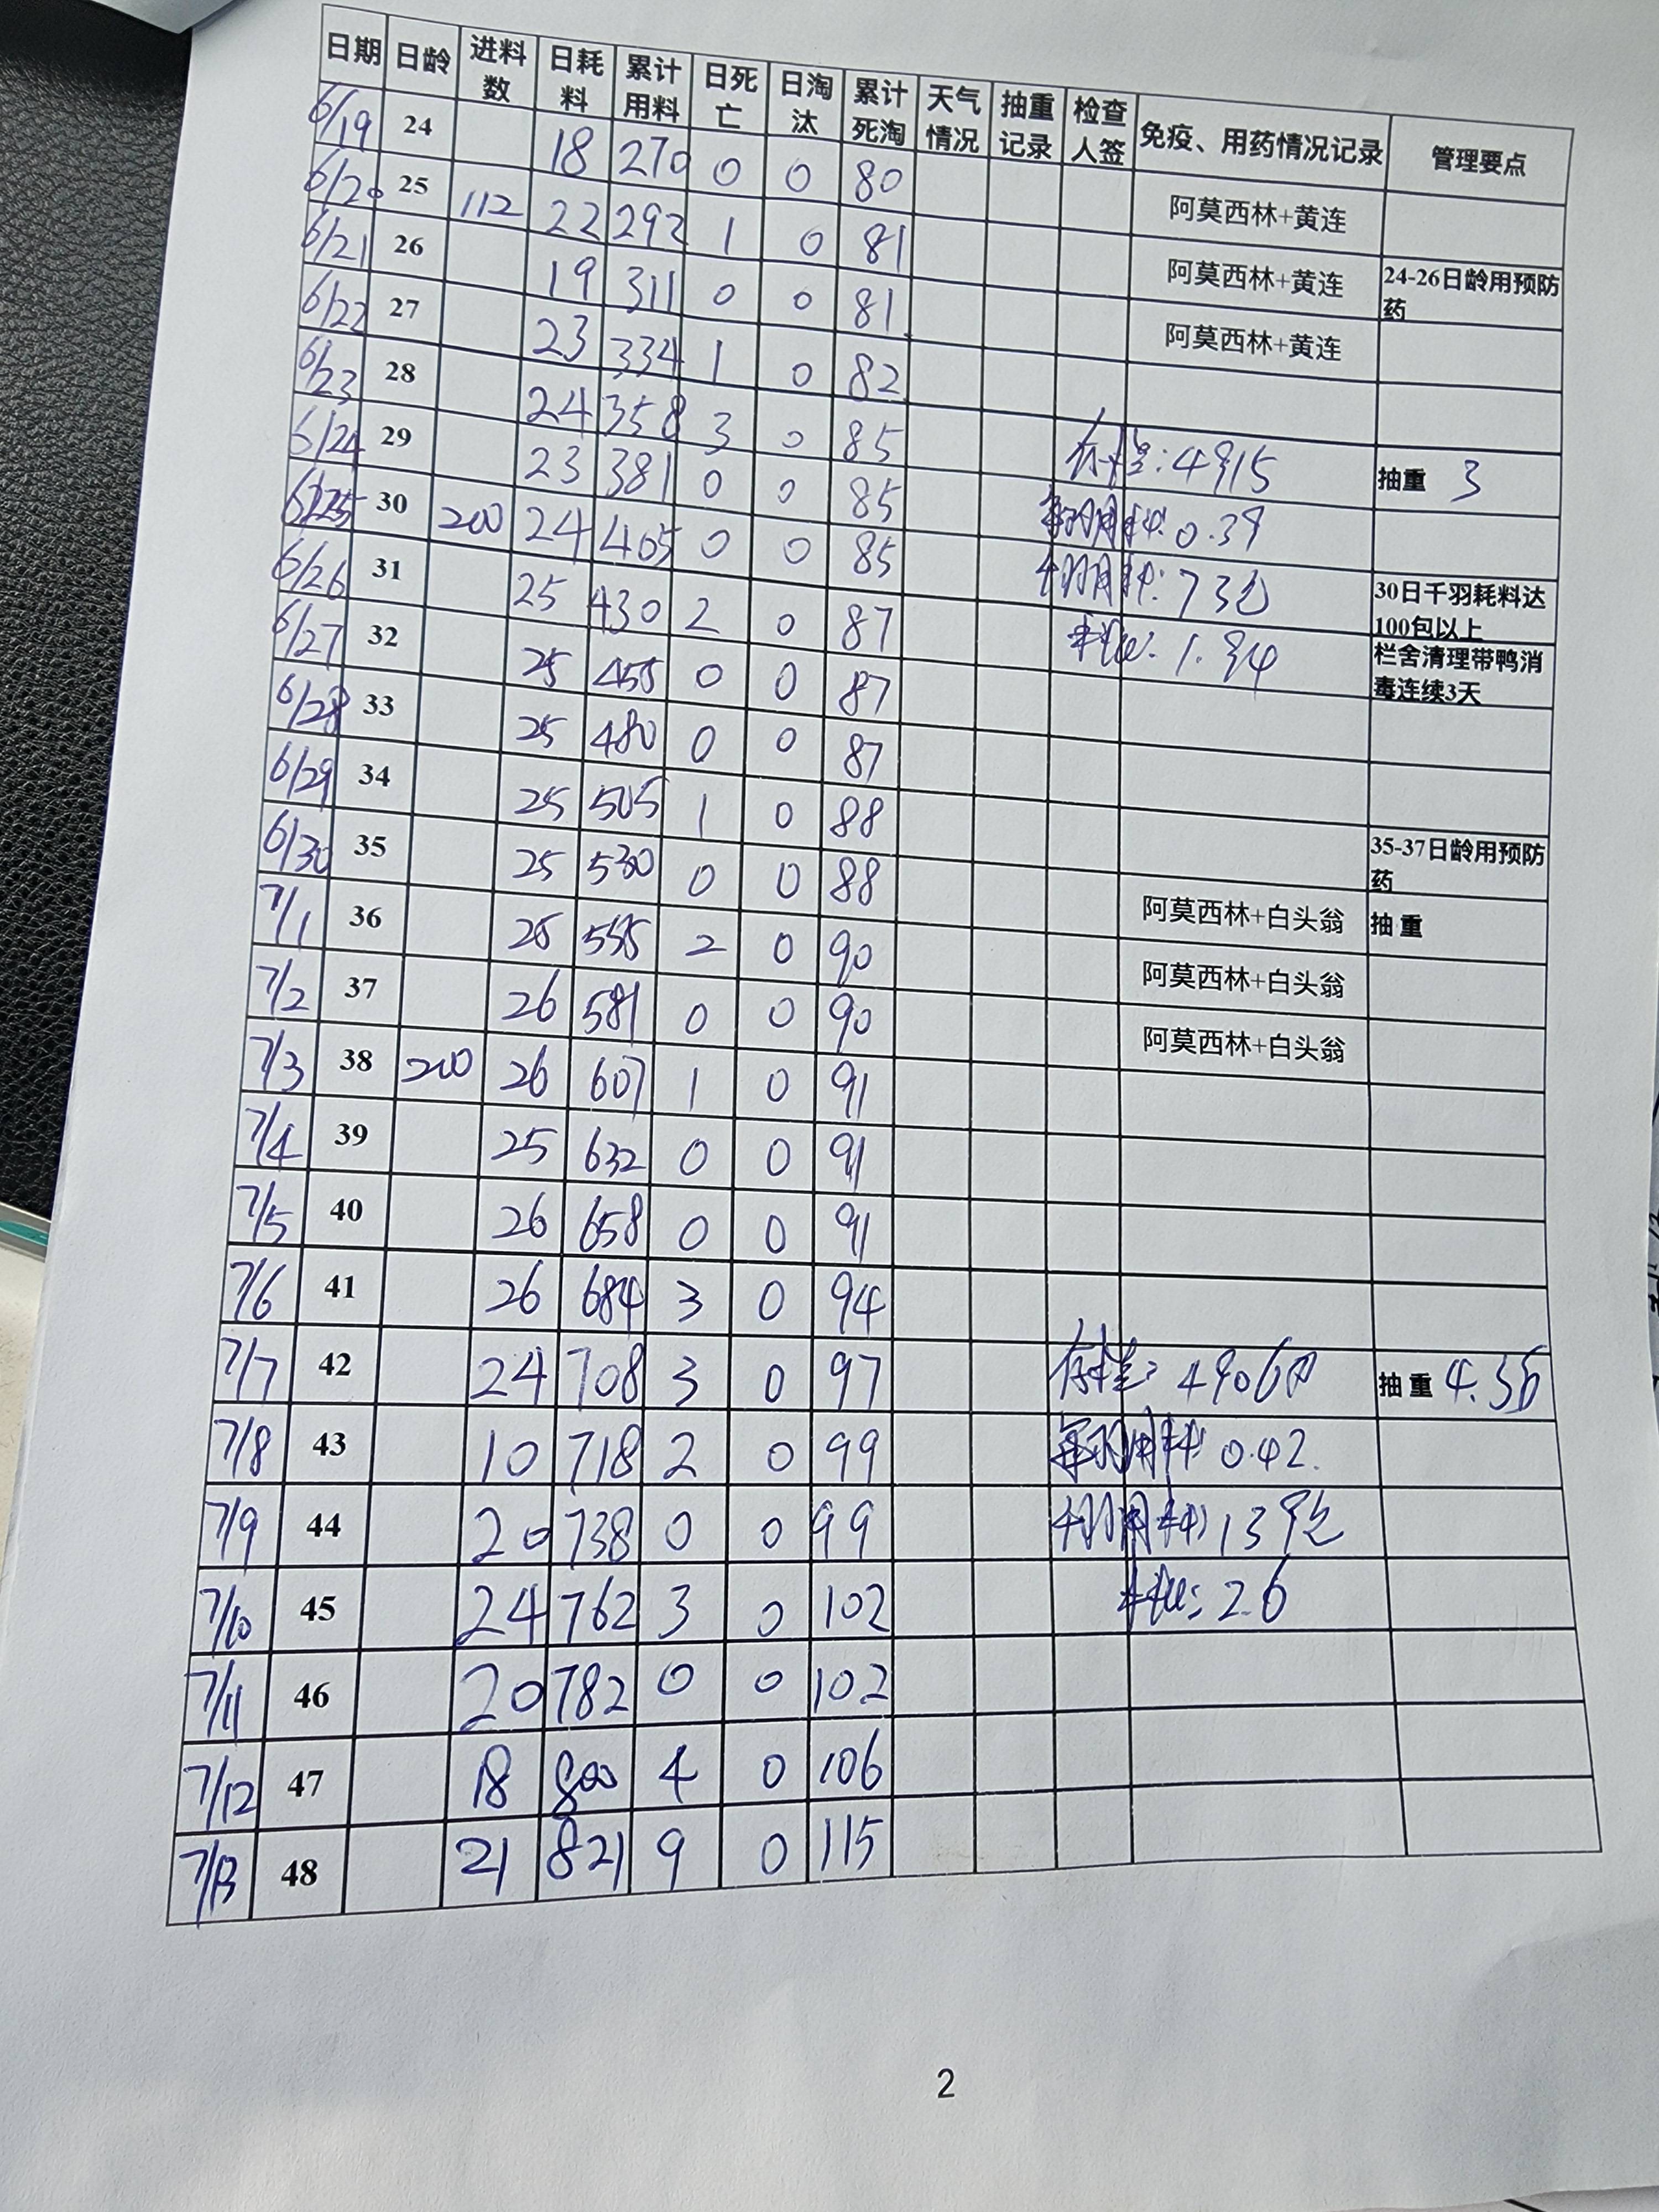 日期 日龄 进料数 日耗料 累计用料 日死亡 日淘汰 累计死淘 天气情况 抽重记录 检查人签 免疫、用药情况记录 管理要点
6/19 24 18 270 0 0 80 阿莫西林+黄连
6/20 25 112 22 292 1 0 81 阿莫西林+黄连 24-26日龄用预防药
6/21 26 19 311 0 0 81 阿莫西林+黄连
6/22 27 23 334 1 0 82
6/23 28 24 358 3 0 85 存栏: 4915 抽重 3
6/24 29 23 381 0 0 85 每羽用料: 0.39
6/25 30 200 24 405 0 0 85 千羽用料: 73包 30日千羽耗料达100包以上
6/26 31 25 430 2 0 87 料比: 1.94 栏舍清理带鸭消毒连续3天
6/27 32 25 455 0 0 87
6/28 33 25 480 0 0 87
6/29 34 25 505 1 0 88 35-37日龄用预防药
6/30 35 25 530 0 0 88 阿莫西林+白头翁 抽重
7/1 36 25 555 2 0 90 阿莫西林+白头翁
7/2 37 26 581 0 0 90 阿莫西林+白头翁
7/3 38 200 26 607 1 0 91
7/4 39 25 632 0 0 91
7/5 40 26 658 0 0 91
7/6 41 26 684 3 0 94
7/7 42 24 708 3 0 97 存栏: 4906 抽重 4.36
7/8 43 10 718 2 0 99 每羽用料 0.42
7/9 44 20 738 0 0 99 千羽用料 139包
7/10 45 24 762 3 0 102 料比: 2.6
7/11 46 20 782 0 0 102
7/12 47 18 800 4 0 106
7/13 48 21 821 9 0 115
2